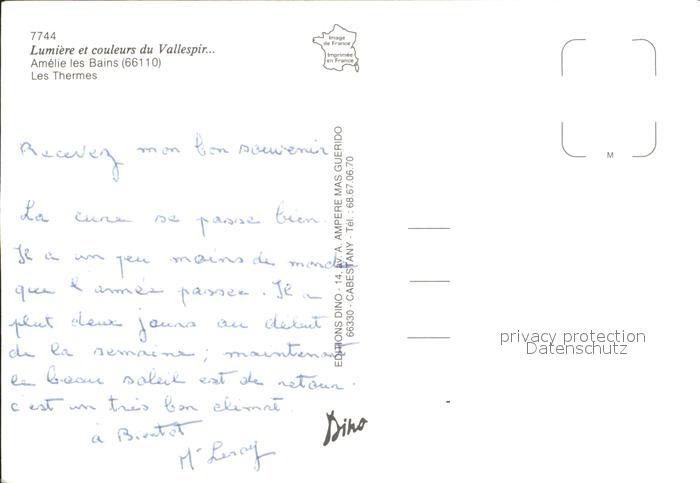 7744
Lumière et couleurs du Vallespir...
Amélie les Bains (66110)
Les Thermes
Image
de France
Imprimée
en France
M
Recevez mon bon souvenir
La cure se passe bien.
Il a un peu moins de monde
que l'année passée. Il a
plut deux jours au début
de la semaine ; maintenant
le beau soleil est de retour.
c'est un très bon climat.
à Bientot
Mr Leroy
EDITIONS DINO - 14, av. A. AMPERE MAS GUERIDO
66330 - CABESTANY - Tél. : 68.67.06.70
Dino
privacy protection
Datenschutz